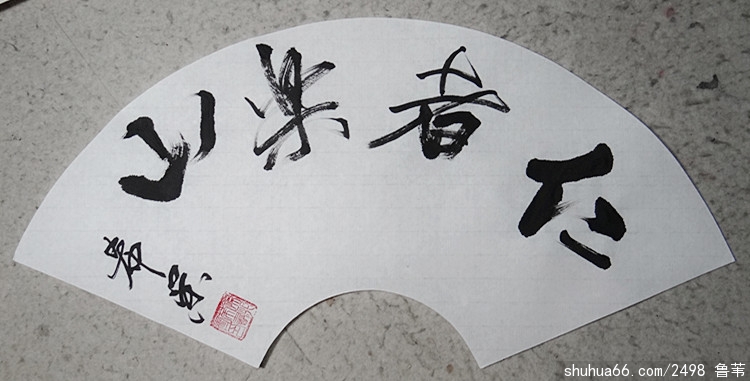 仁者樂山
shuhua66.com/2498 鲁苇